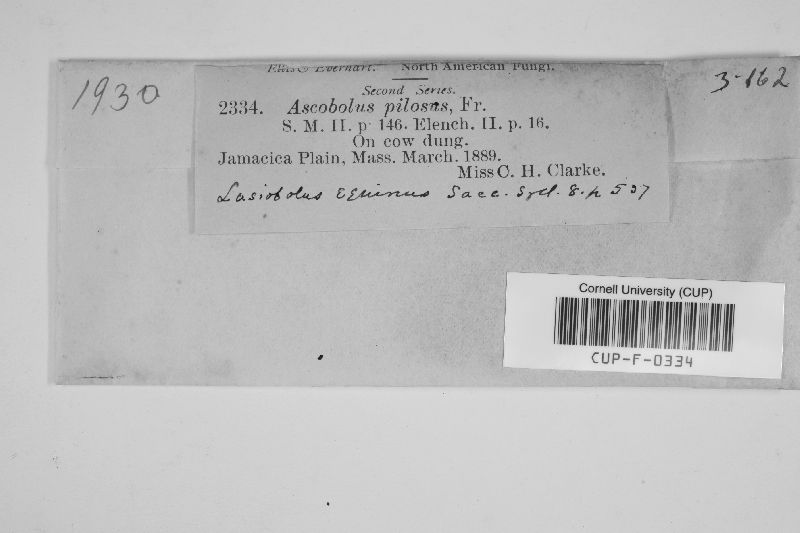 1930
3-162
Ellis & Everhart. North American Fungi.
Second Series.
2334. Ascobolus pilosus, Fr.
S. M. II. p. 146. Elench. II. p. 16.
On cow dung.
Jamacica Plain, Mass. March. 1889.
Miss C. H. Clarke.
Lasiobolus equinus Sacc. Syll. 8. p 537
Cornell University (CUP)
CUP-F-0334